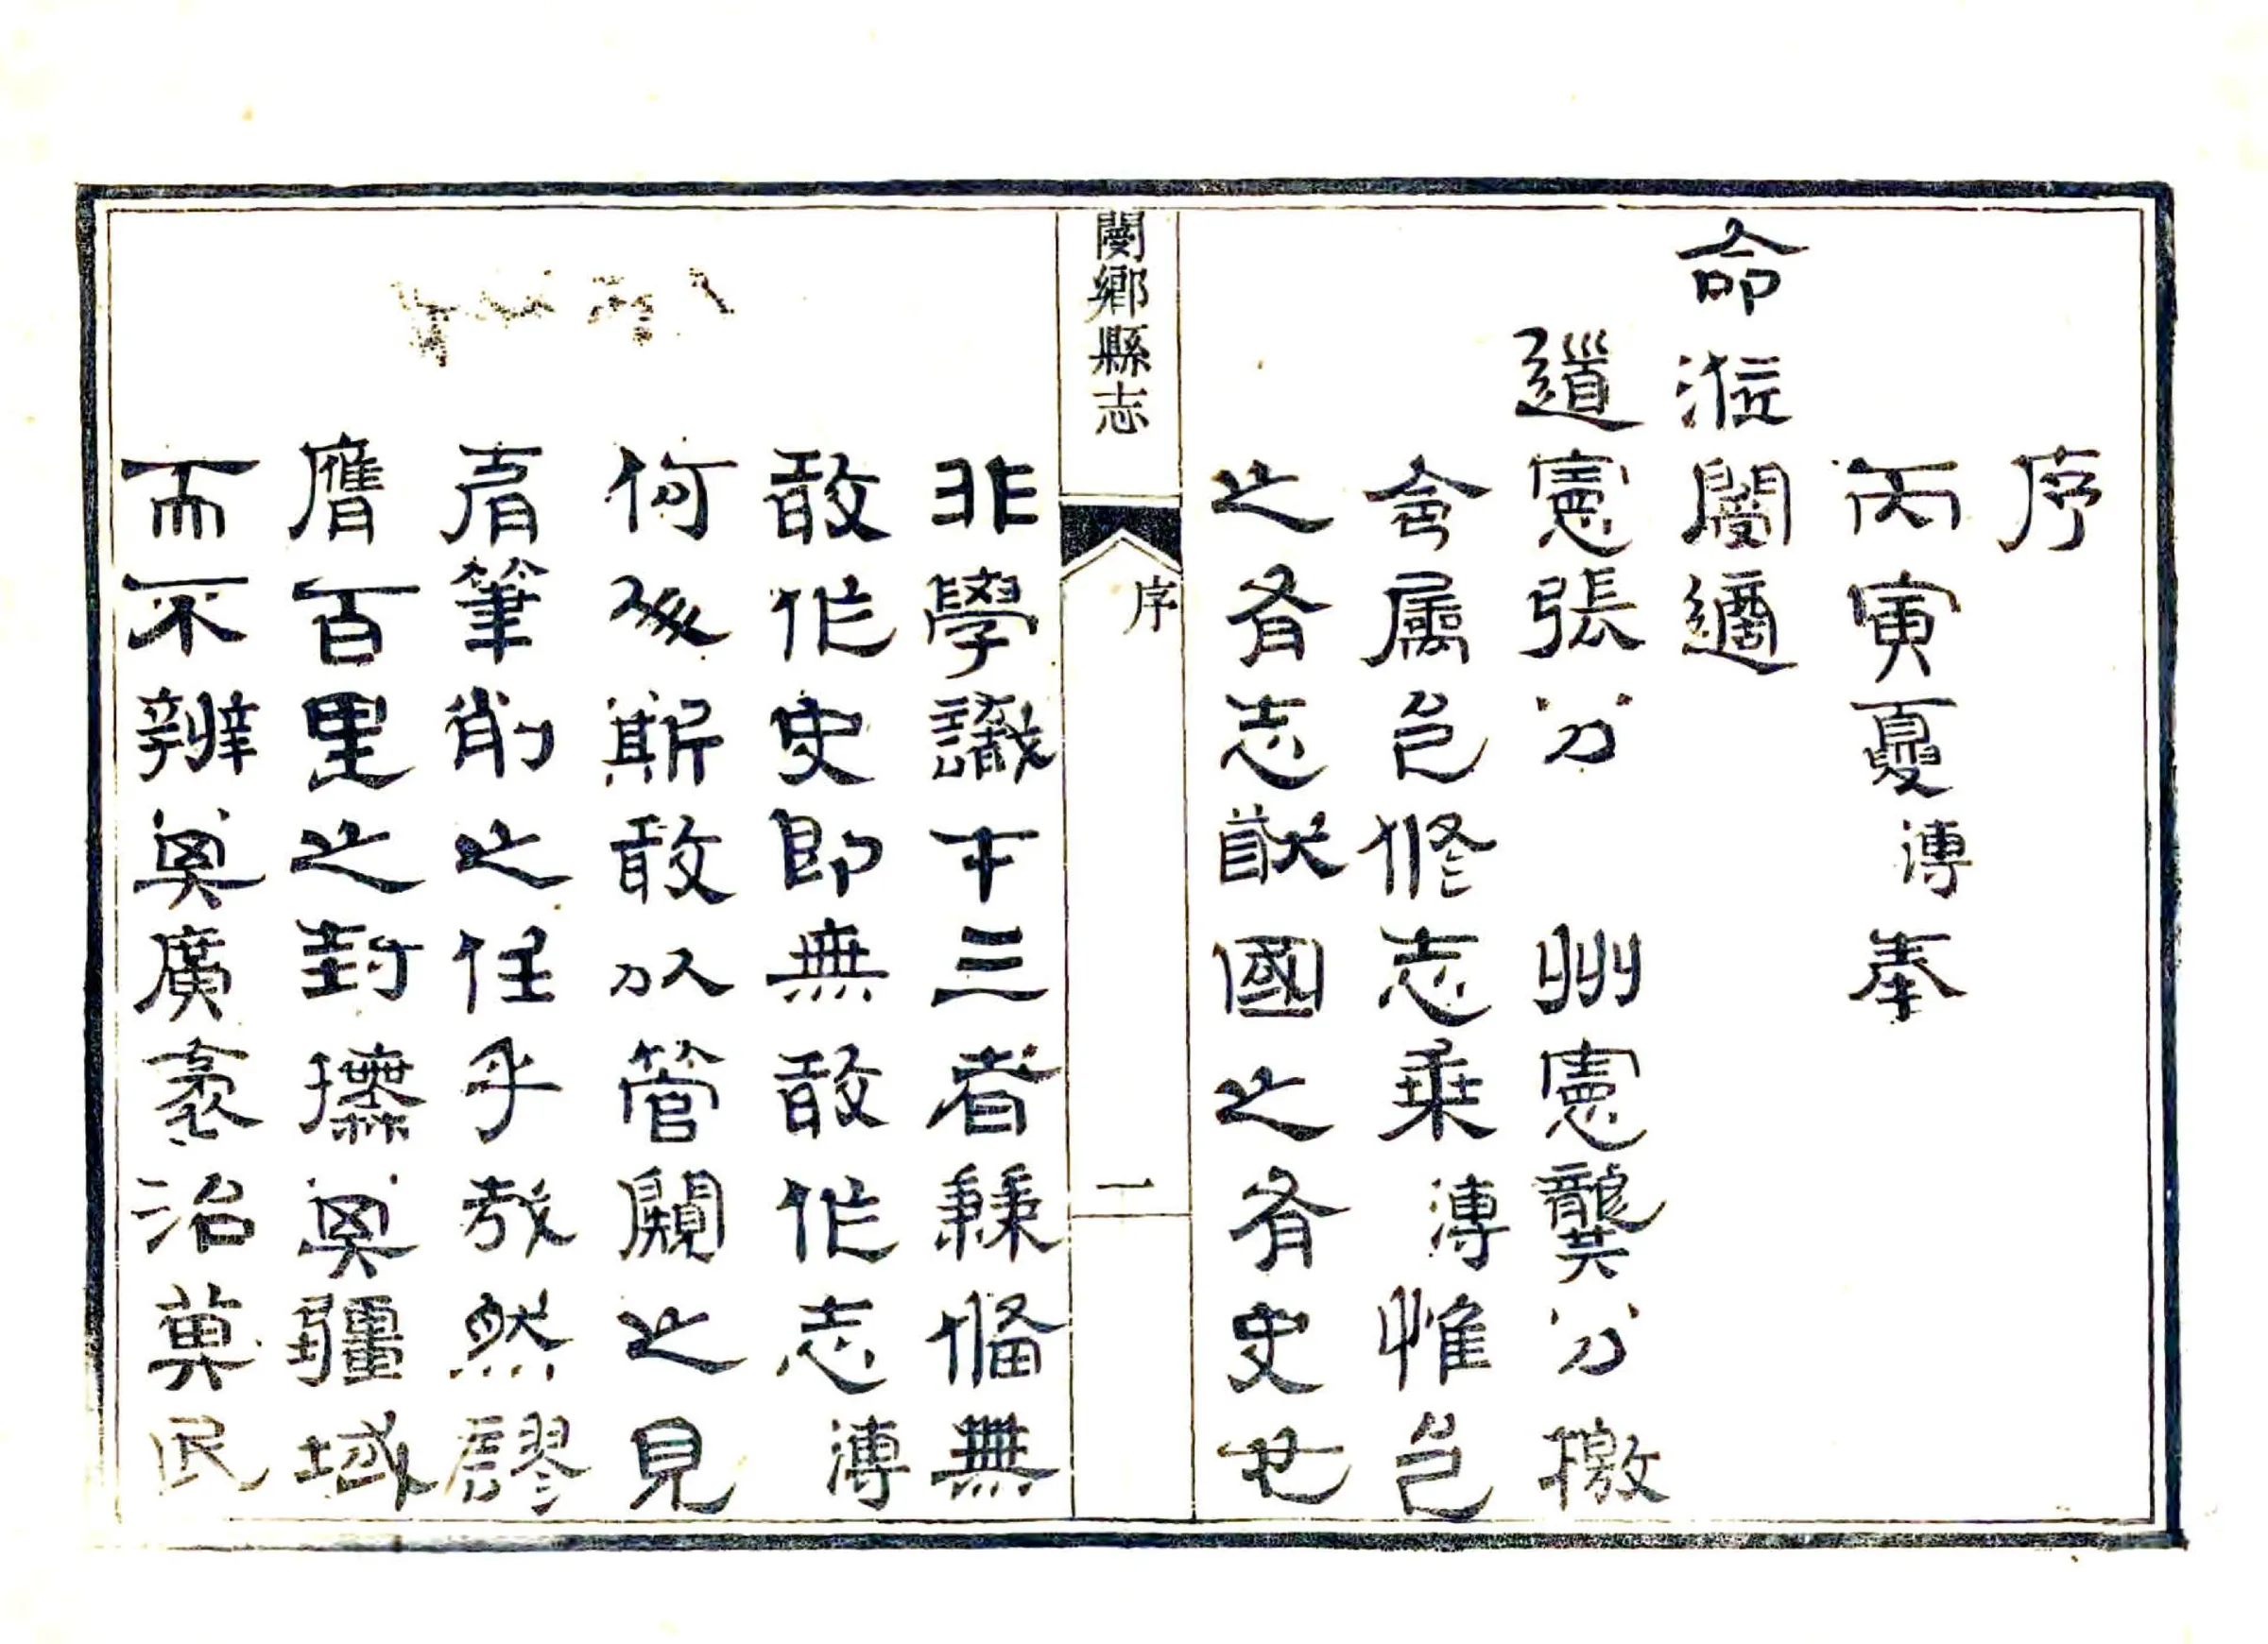 序
丙寅夏溥奉
命涖閿適
道憲張公　州憲龔公檄
令屬邑修志乘溥惟邑
之有志猷國之有史也
閿鄉縣志
序
一
非學識才三者兼備無
敢作史即無敢作志溥
何人斯敢以管闚之見
肩筆削之任乎哉然謬
膺百里之封攈其疆域
而不辨其廣袤治其民